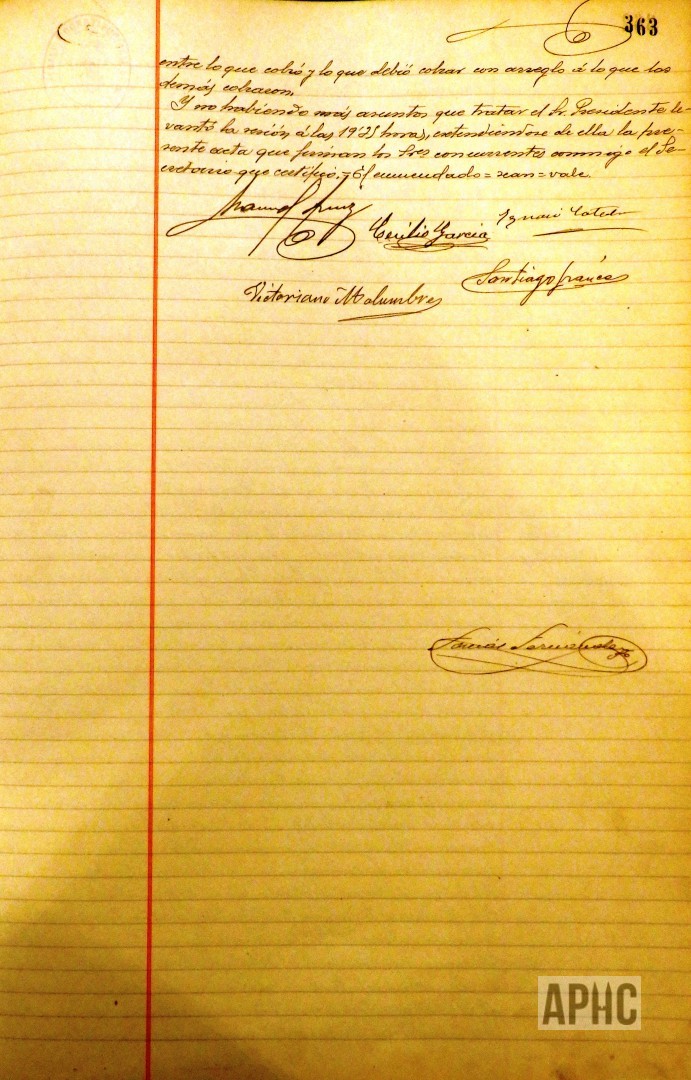 363
entre lo que cobró y lo que debió cobrar con arreglo á lo que los
demás cobraron.
Y no habiendo más asuntos que tratar el Sr. Presidente le-
vantó la sesión á las 19'25 horas, extendiéndose de ella la pre-
sente acta que firman los Sres concurrentes conmigo el Se-
cretario que certifico.=El enmendado=sean=vale
Manuel
Cecilio García
Santiago francés
Victoriano Malumbres
Tomás Fernández
APHC